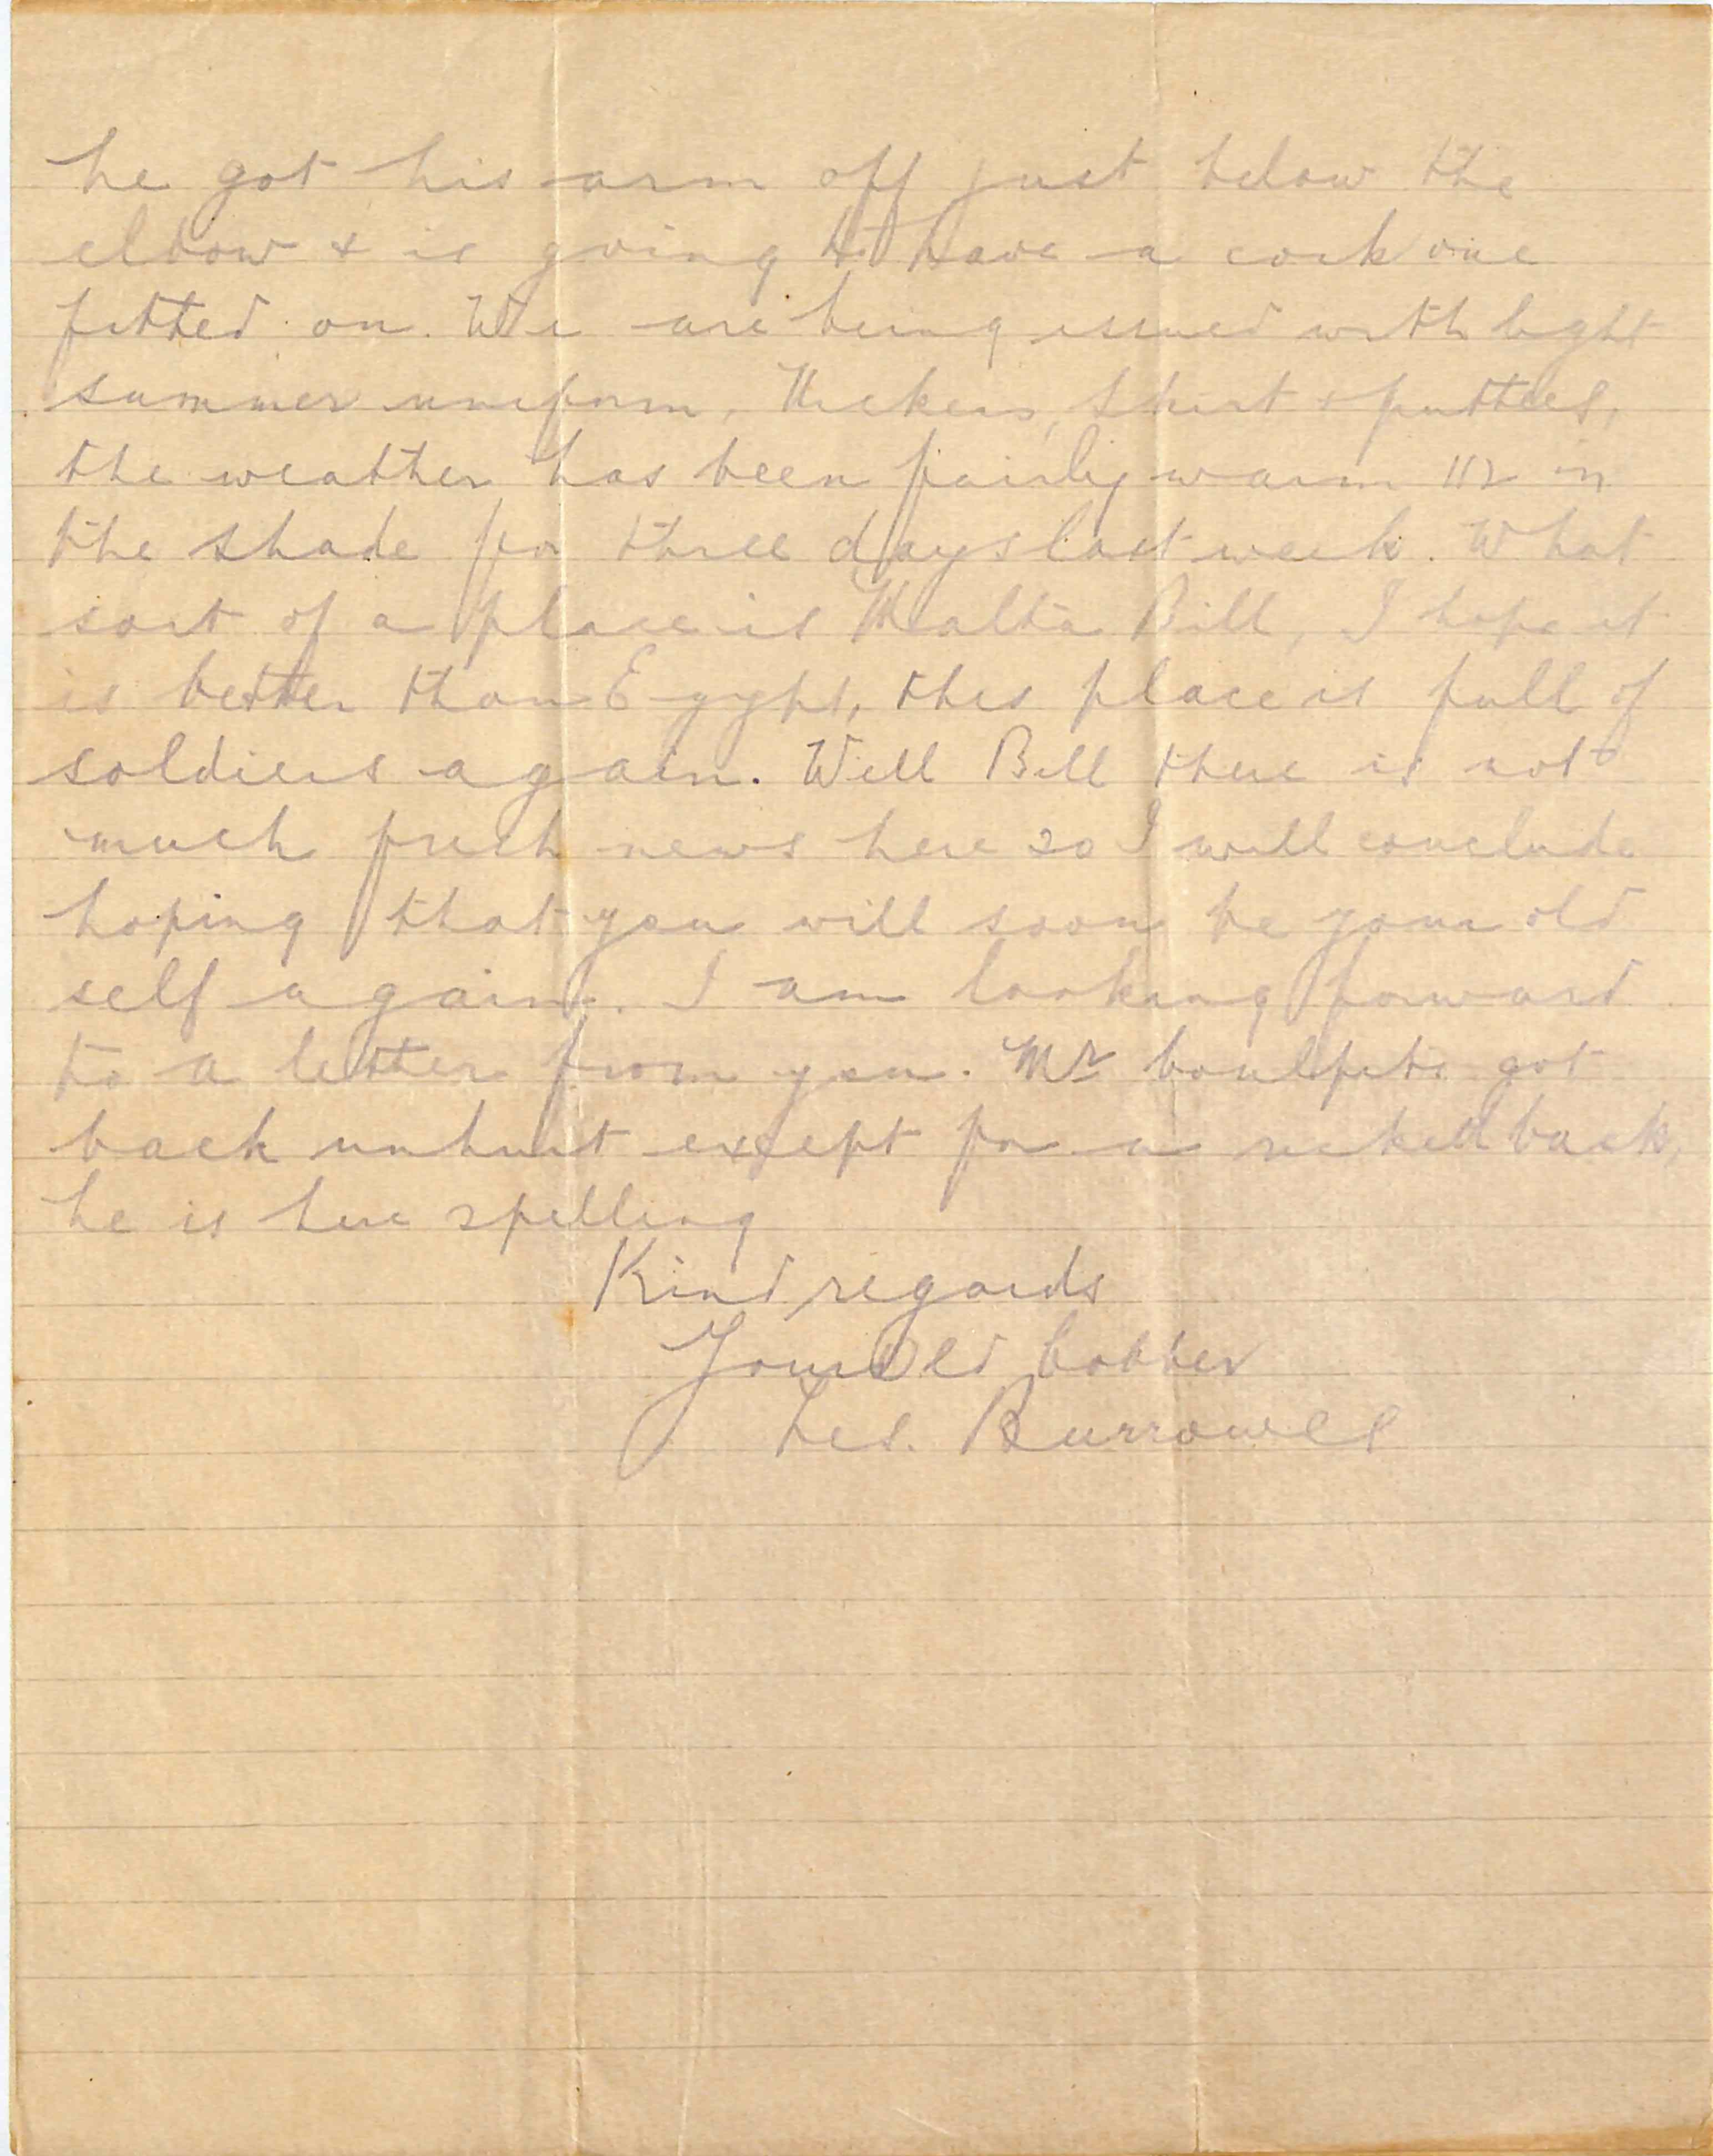 he got his arm off just below the
elbow & is going to have a cork one
fitted on. We are being issued with light
summer uniform, Nickers, shirt & puttees,
the weather has been fairly warm 112 in
the shade for three days last week. What
sort of a place is Malta Bill, I hope it
is better than Egypt, this place is full of
soldiers again. Well Bill there is not
much fresh news here so I will conclude
hoping that you will soon be your old
self again. I am looking forward
to a letter from you. Mr got
back unhurt except for a ricked back,
he is here spelling
Kind regards
Your Old Cobber
Les. Burrowes